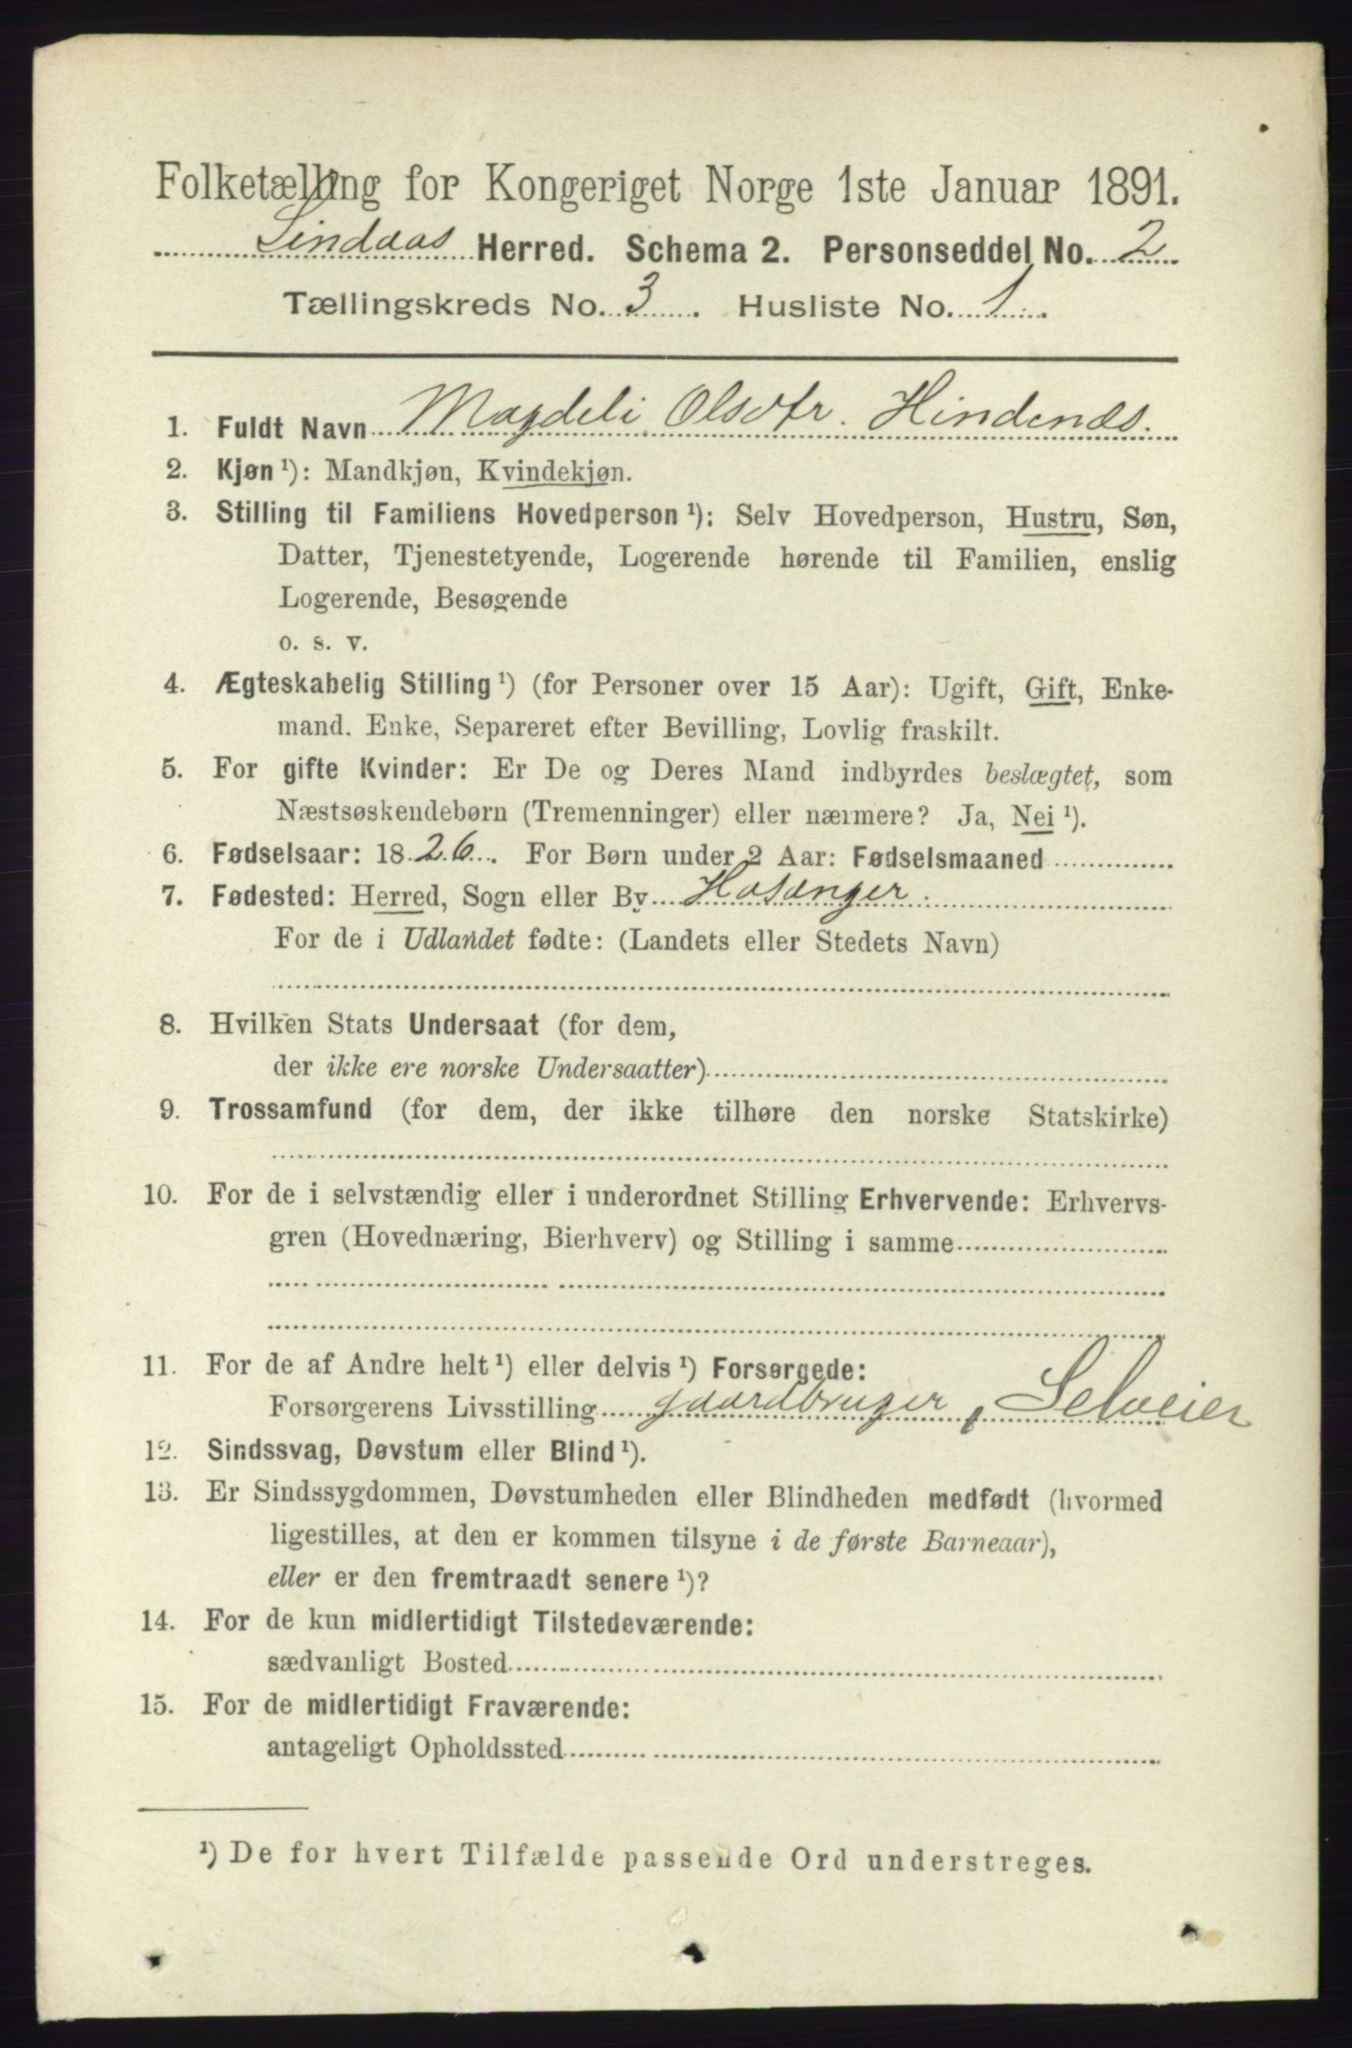 Folketælling for Kongeriget Norge 1ste Januar 1891.
Lindaas Herred. Schema 2. Personseddel No. 2
Tællingskreds No. 3. Husliste No. 1.
1. Fuldt Navn Magdeli Olsdtr. Hindenæs.
2. Kjøn ¹): Mandkjøn, Kvindekjøn.
3. Stilling til Familiens Hovedperson ¹): Selv Hovedperson, Hustru, Søn,
Datter, Tjenestetyende, Logerende hørende til Familien, enslig
Logerende, Besøgende
o. s. v.
4. Ægteskabelig Stilling ¹) (for Personer over 15 Aar): Ugift, Gift, Enke-
mand. Enke, Separeret efter Bevilling, Lovlig fraskilt.
5. For gifte Kvinder: Er De og Deres Mand indbyrdes beslægtet, som
Næstsøskendebørn (Tremenninger) eller nærmere? Ja, Nei ¹).
6. Fødselsaar: 1826. For Børn under 2 Aar: Fødselsmaaned
7. Fødested: Herred, Sogn eller By Hosanger.
For de i Udlandet fødte: (Landets eller Stedets Navn)
8. Hvilken Stats Undersaat (for dem,
der ikke ere norske Undersaatter)
9. Trossamfund (for dem, der ikke tilhøre den norske Statskirke)
10. For de i selvstændig eller i underordnet Stilling Erhvervende: Erhvervs-
gren (Hovednæring, Bierhverv) og Stilling i samme
11. For de af Andre helt ¹) eller delvis ¹) Forsørgede:
Forsørgerens Livsstilling gaardbruger, Selveier
12. Sindssvag, Døvstum eller Blind ¹).
13. Er Sindssygdommen, Døvstumheden eller Blindheden medfødt (hvormed
ligestilles, at den er kommen tilsyne i de første Barneaar),
eller er den fremtraadt senere ¹)?
14. For de kun midlertidigt Tilstedeværende:
sædvanligt Bosted
15. For de midlertidigt Fraværende:
antageligt Opholdssted
¹) De for hvert Tilfælde passende Ord understreges.